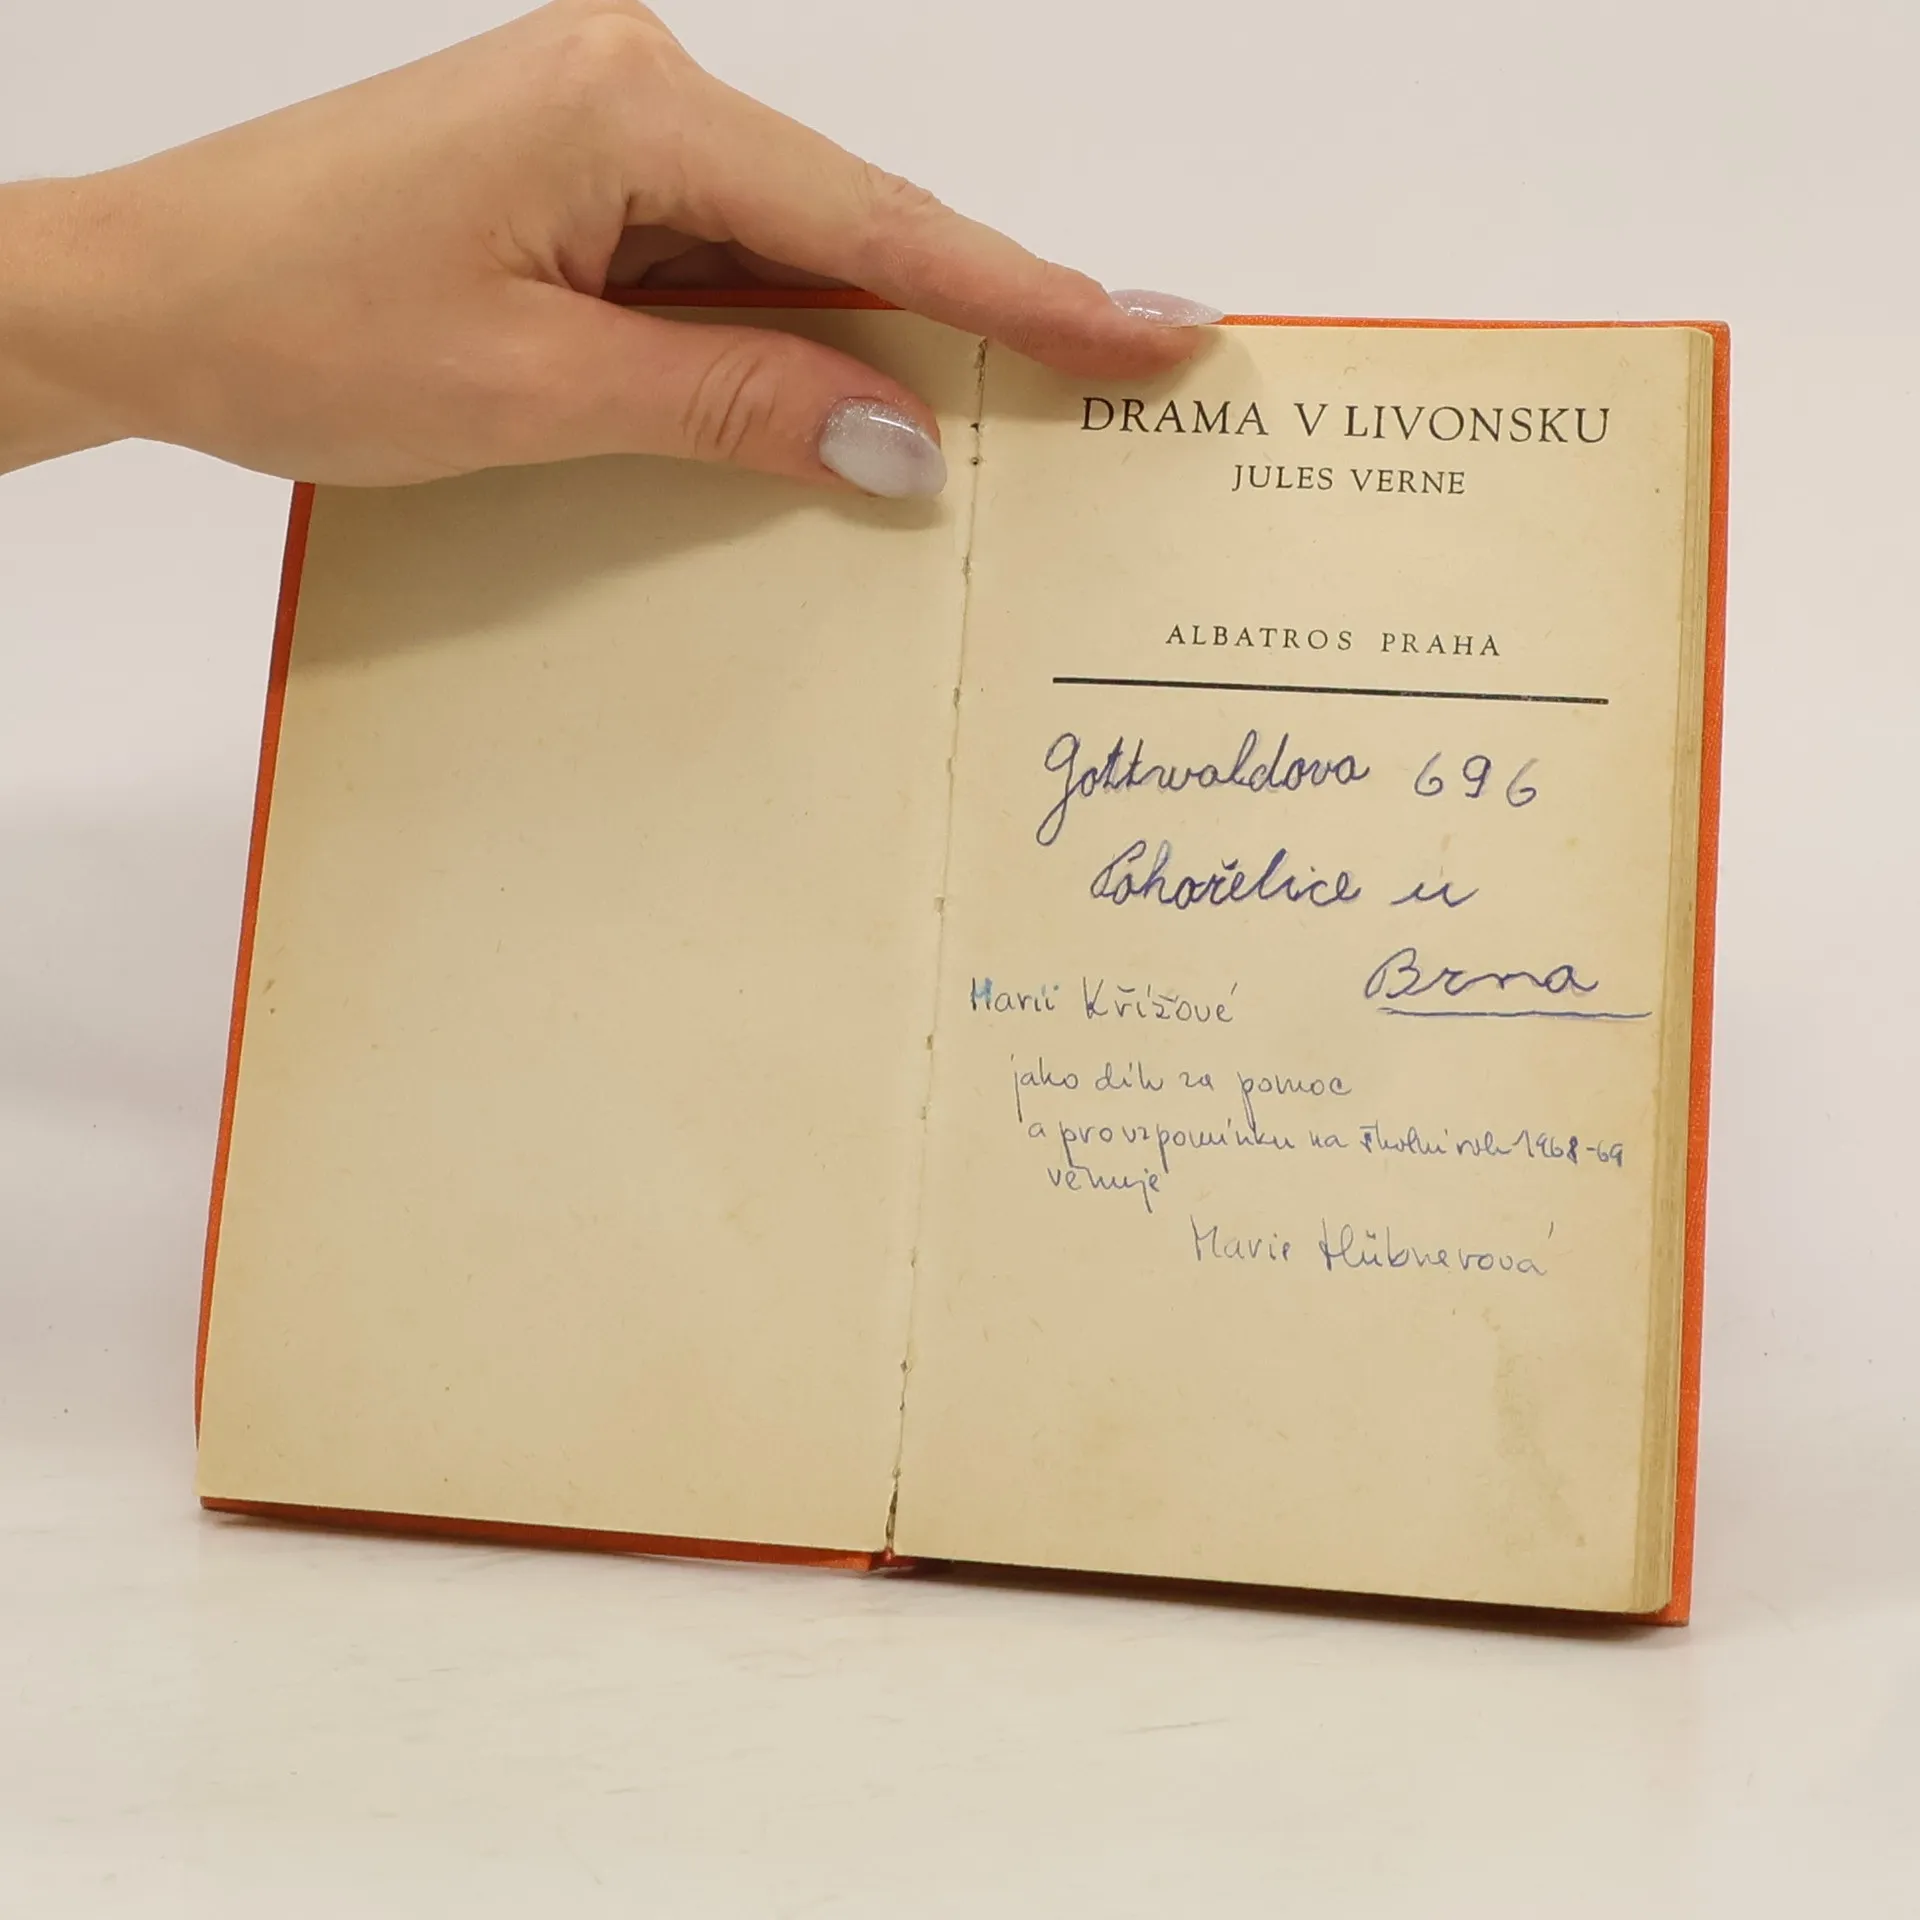 DRAMA V LIVONSKU
JULES VERNE
ALBATROS PRAHA
Gottwaldova 696
Pohořelice u
Brna
Marii Křížové
jako dík za pomoc
a pro vzpomínku na školní rok 1968-69
věnuje
Marie Hübnerová